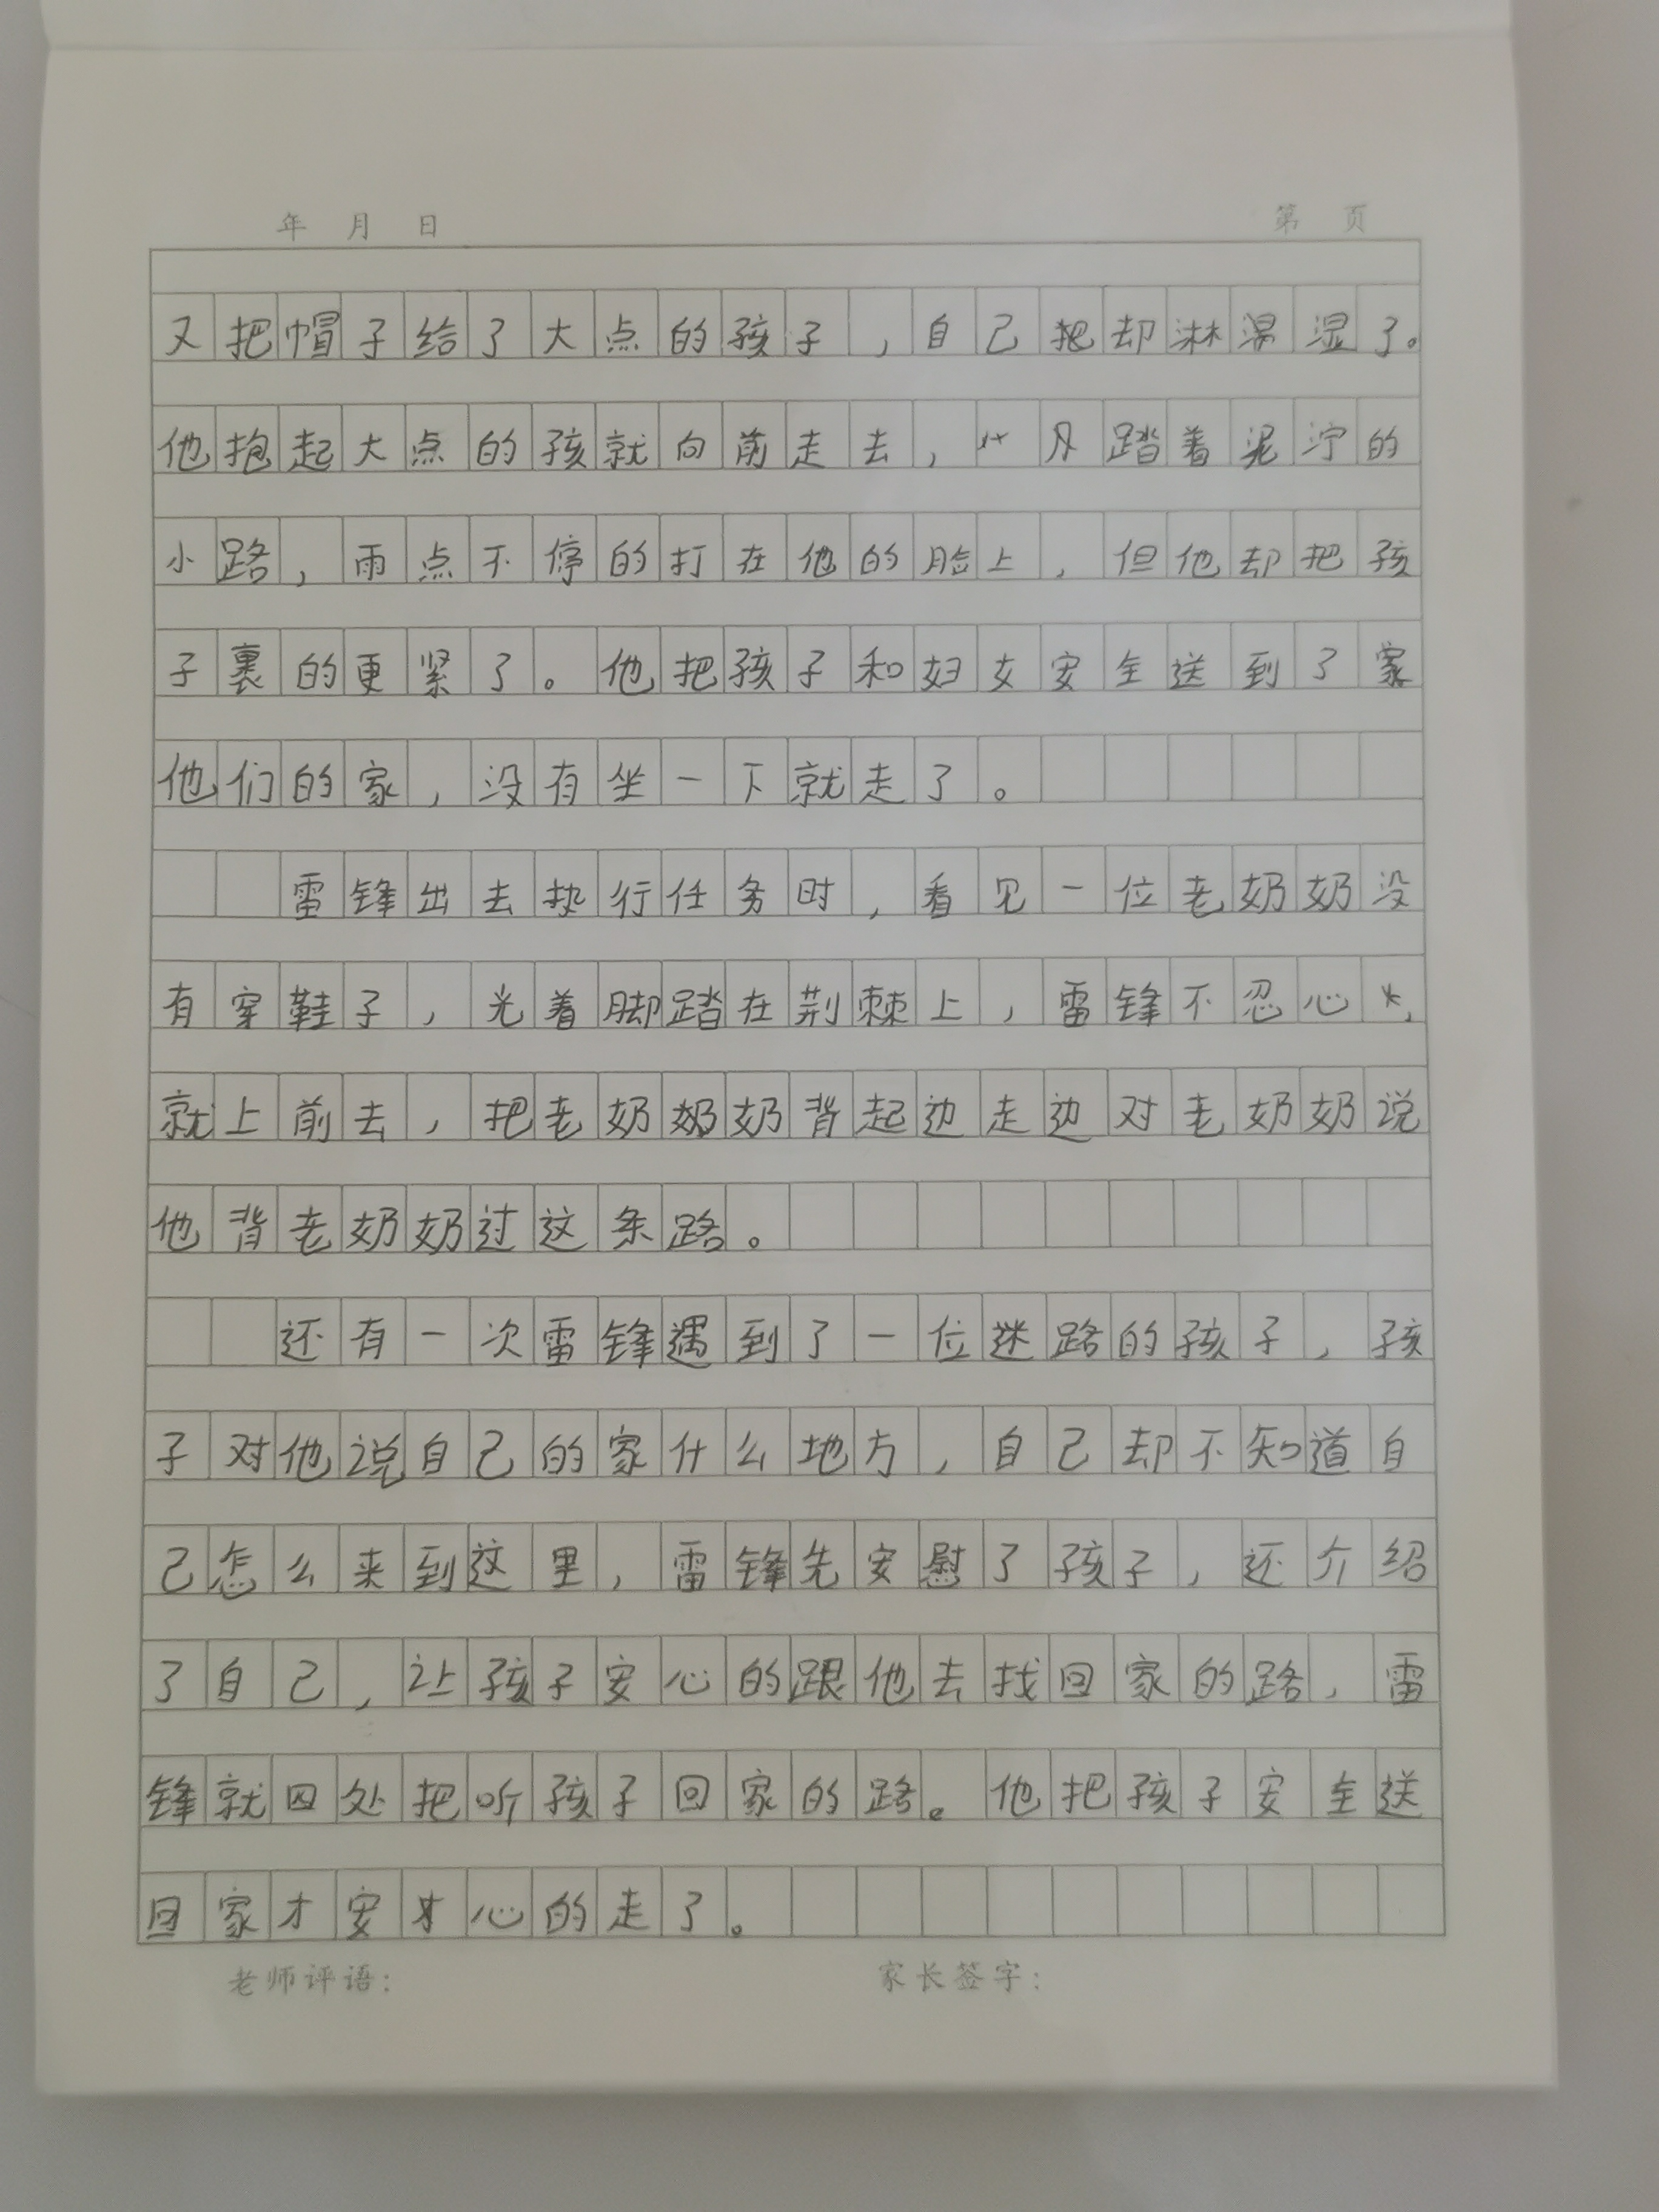 年 月 日 第 页
又把帽子给了大点的孩子，自己却淋湿了。
他抱起大点的孩就向前走去，踏着泥泞的
小路，雨点不停的打在他的脸上，但他却把孩
子裹的更紧了。他把孩子和妇女安全送到了
他们的家，没有坐一下就走了。
雷锋出去执行任务时，看见一位老奶奶没
有穿鞋子，光着脚踏在荆棘上，雷锋不忍心，
就上前去，把老奶奶背起边走边对老奶奶说
他背老奶奶过这条路。
还有一次雷锋遇到了一位迷路的孩子，孩
子对他说自己的家什么地方，自己却不知道自
己怎么来到这里，雷锋先安慰了孩子，还介绍
了自己，让孩子安心的跟他去找回家的路，雷
锋就四处把听孩子回家的路。他把孩子安全送
回家才安心的走了。
老师评语： 家长签字：